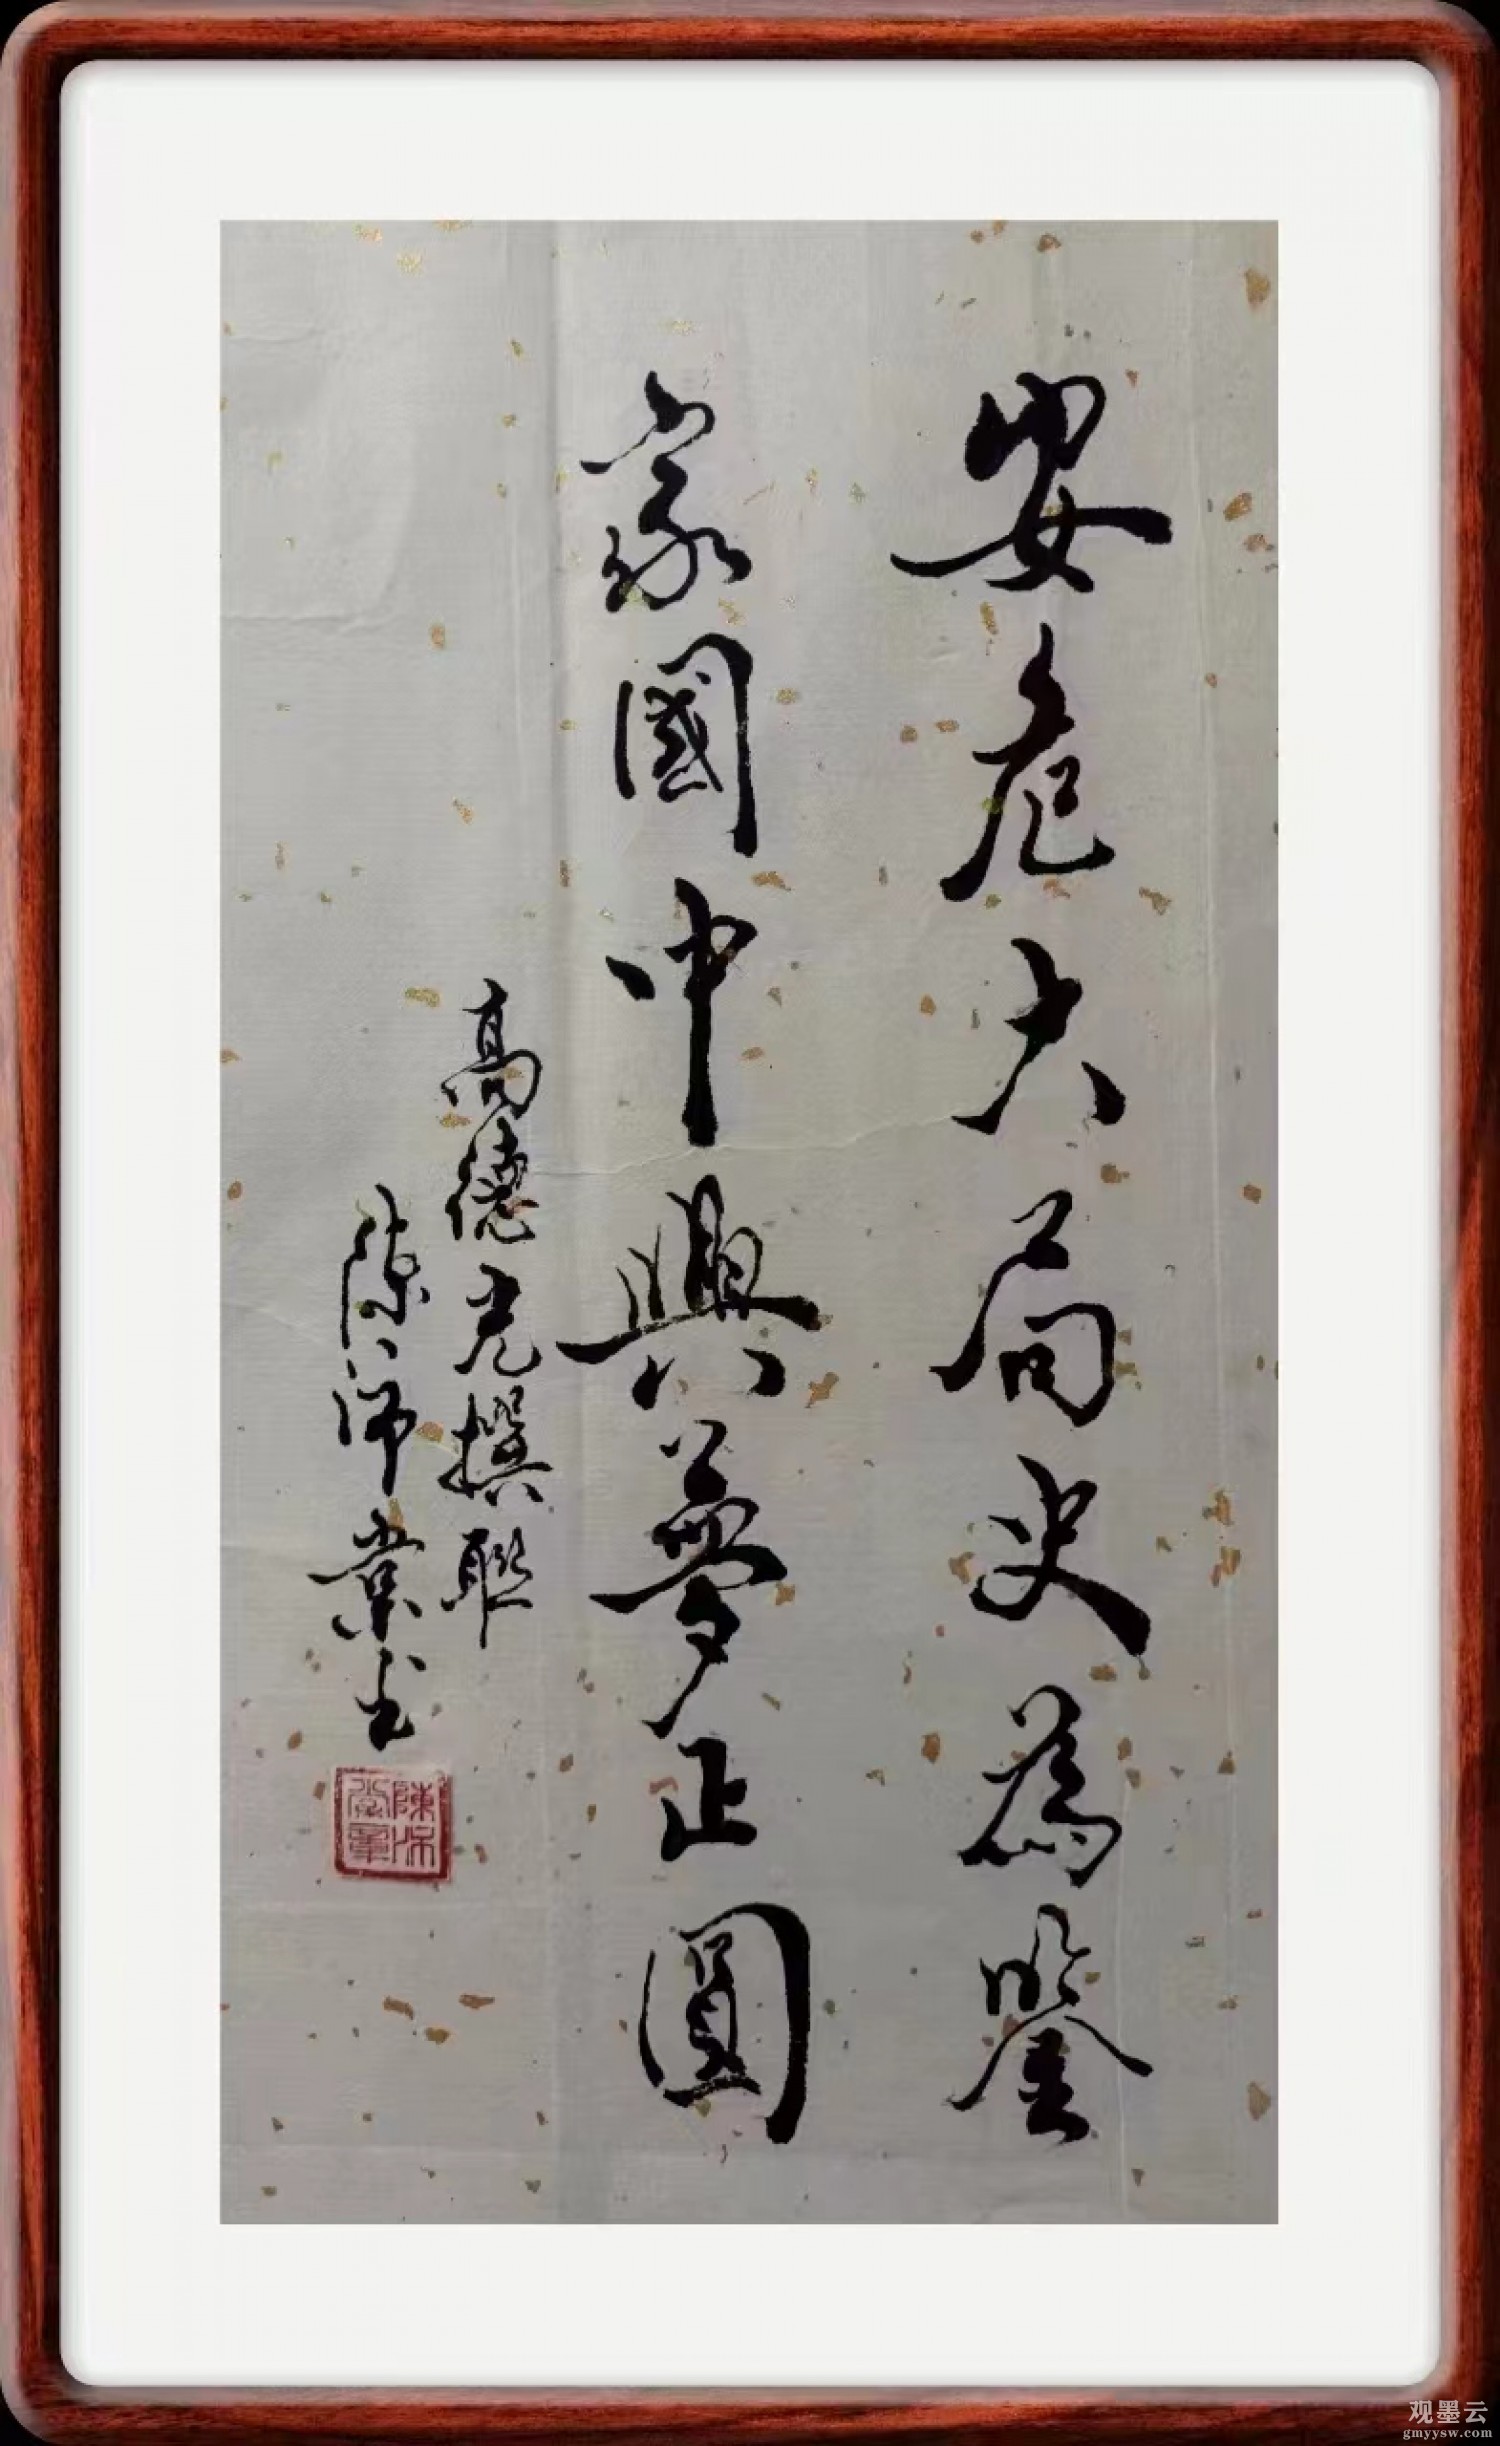 安危大局史為鑒
家國中興夢正圓
高德光撰聯
陳沛業书
观墨云
gmyysw.com